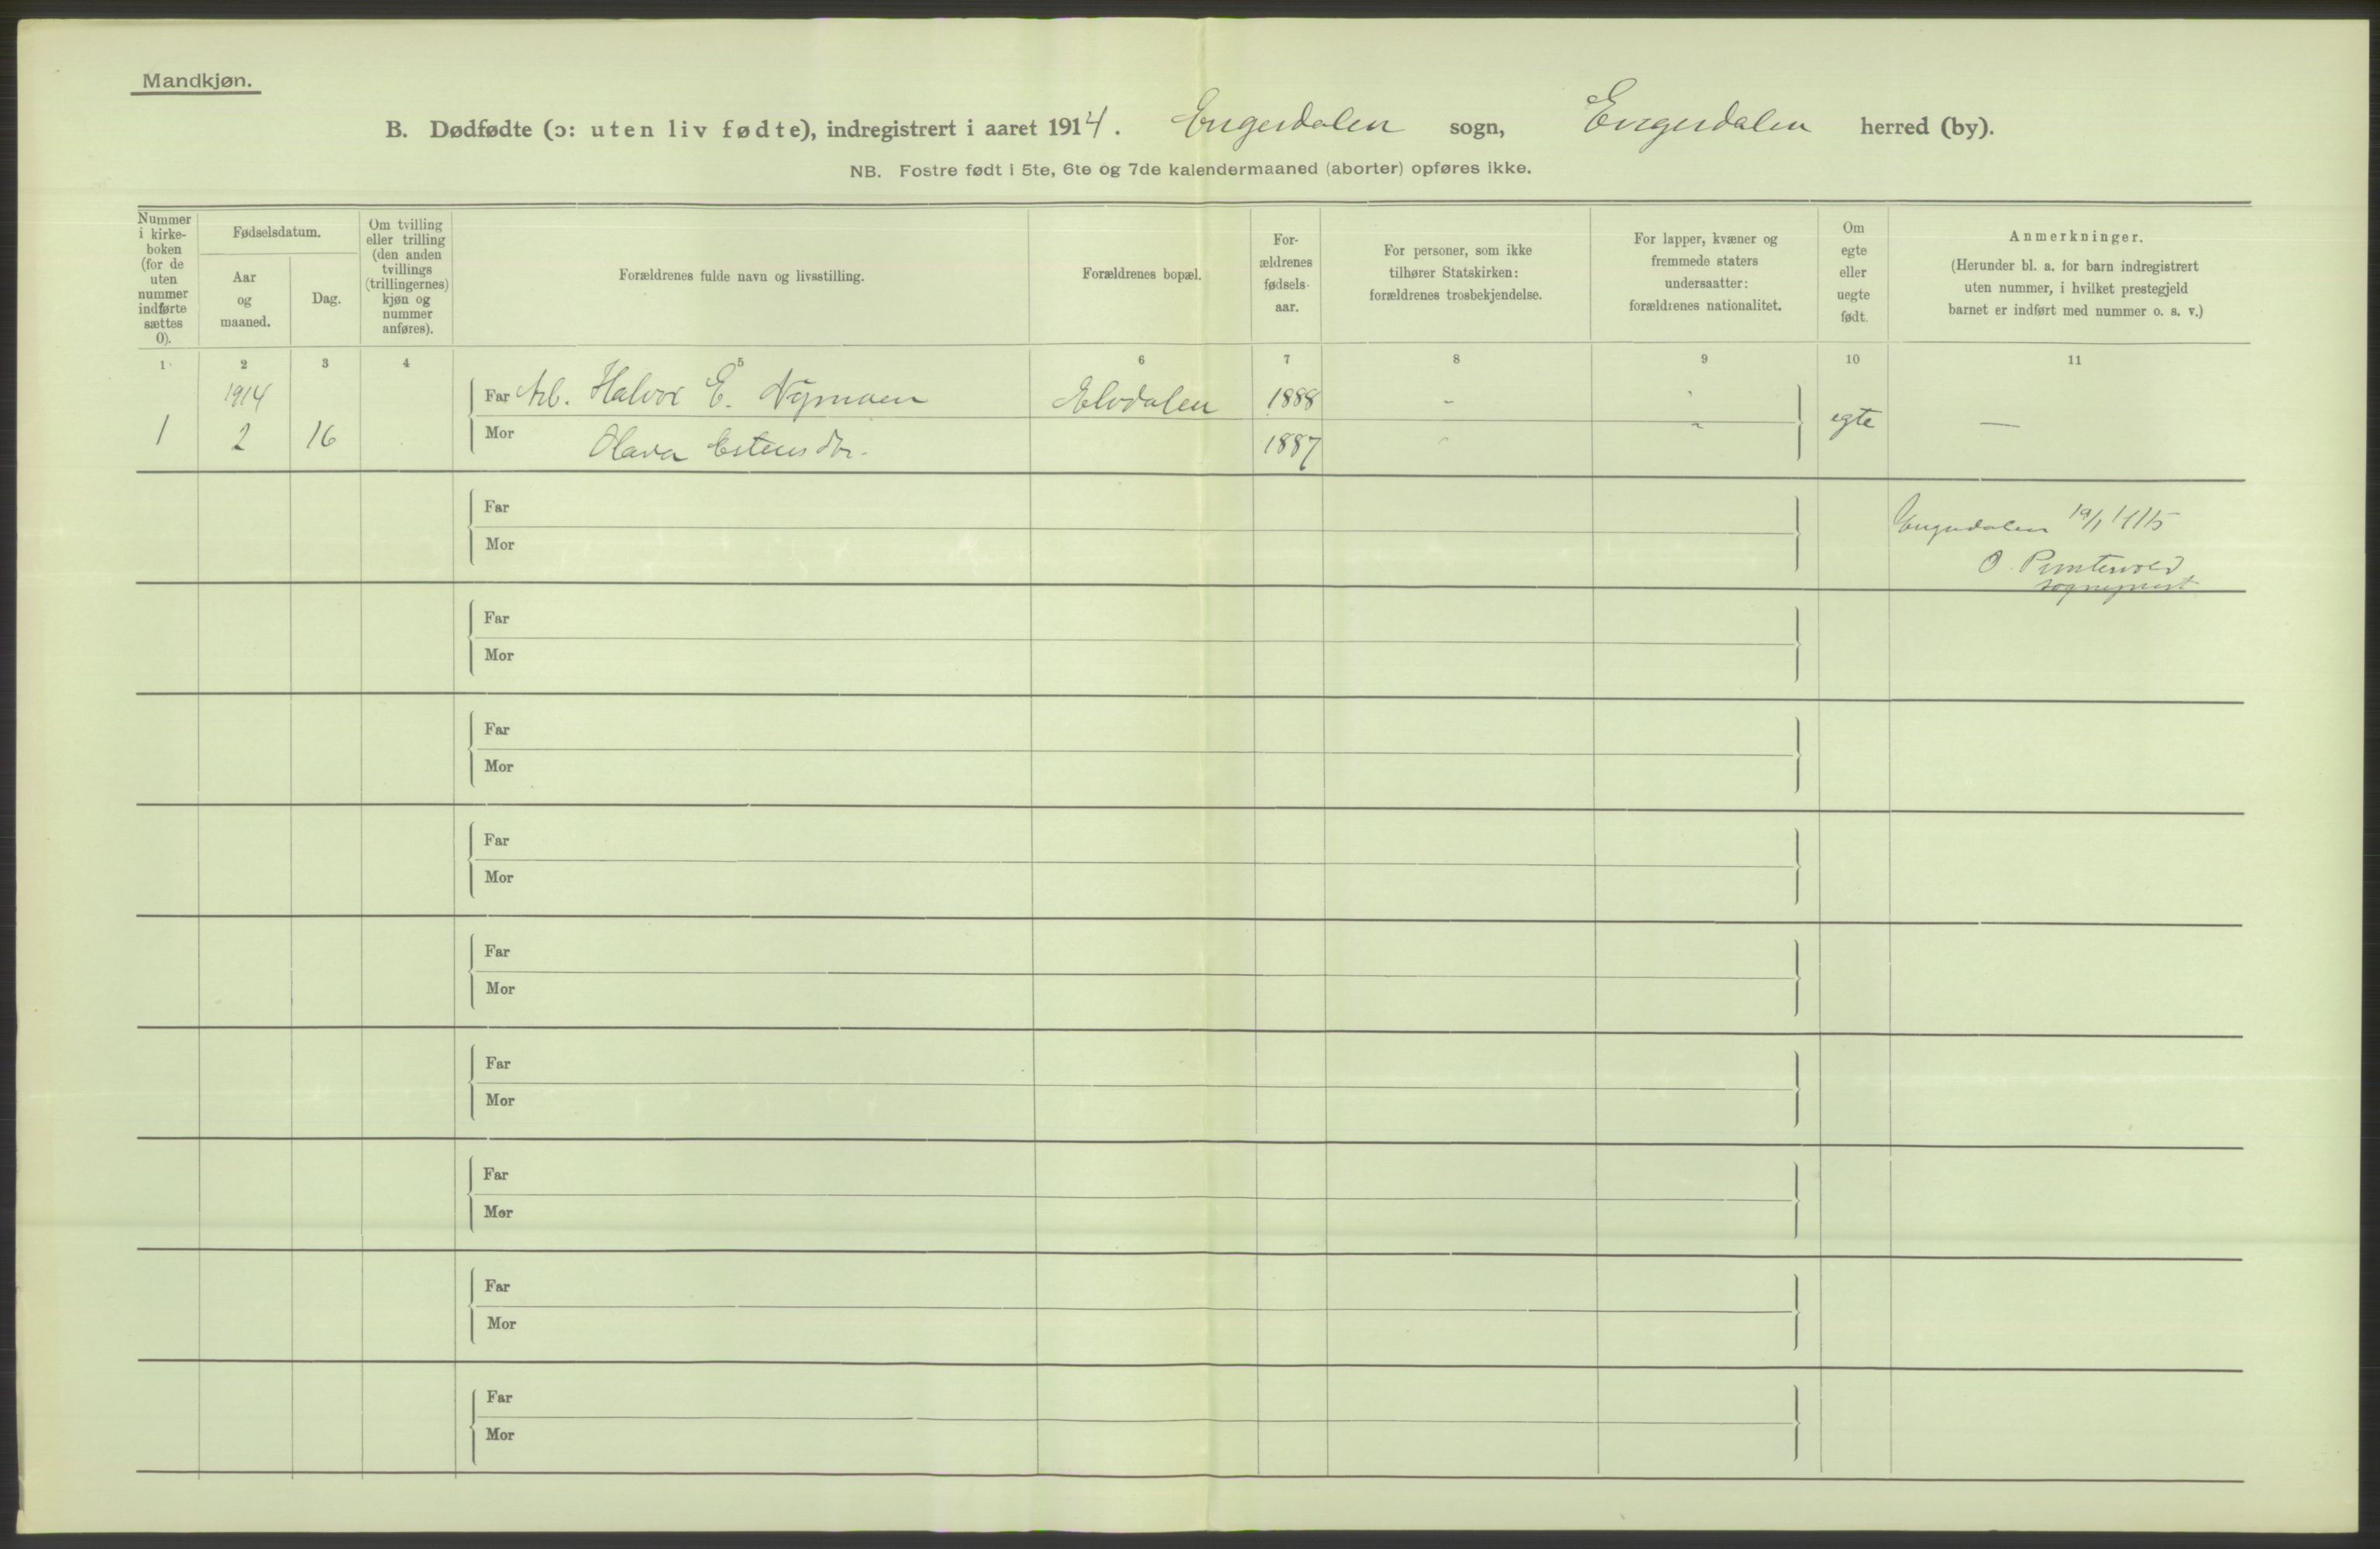 Mandkjøn.
B. Dødfødte (ɔ: uten liv fødte), indregistrert i aaret 1914. Engerdalen sogn, Engerdalen herred (by).
NB. Fostre født i 5te, 6te og 7de kalendermaaned (aborter) opføres ikke.
Nummer
i kirke-
boken
(for de
uten
nummer
indførte
sættes
0).
Fødselsdatum.
Aar
og
maaned.
Dag.
Om tvilling
eller trilling
(den anden
tvillings
(trillingernes)
kjøn og
nummer
anføres).
Forældrenes fulde navn og livsstilling.
Forældrenes bopæl.
For-
ældrenes
fødsels-
aar.
For personer, som ikke
tilhører Statskirken:
forældrenes trosbekjendelse.
For lapper, kvæner og
fremmede staters
undersaatter:
forældrenes nationalitet.
Om
egte
eller
uegte
født.
Anmerkninger.
(Herunder bl. a. for barn indregistrert
uten nummer, i hvilket prestegjeld
barnet er indført med nummer o. s. v.)
1 2 3 4 5 6 7 8 9 10 11
1914
Far Arb. Halvor E. Nymoen Elvdalen 1888 - -
1 2 16 egte —
Mor Olava Estensdtr. 1887 - -
Far
Engerdalen 19/1 1915
Mor
O.
sogneprest
Far
Mor
Far
Mor
Far
Mor
Far
Mor
Far
Mor
Far
Mor
Far
Mor
Far
Mor